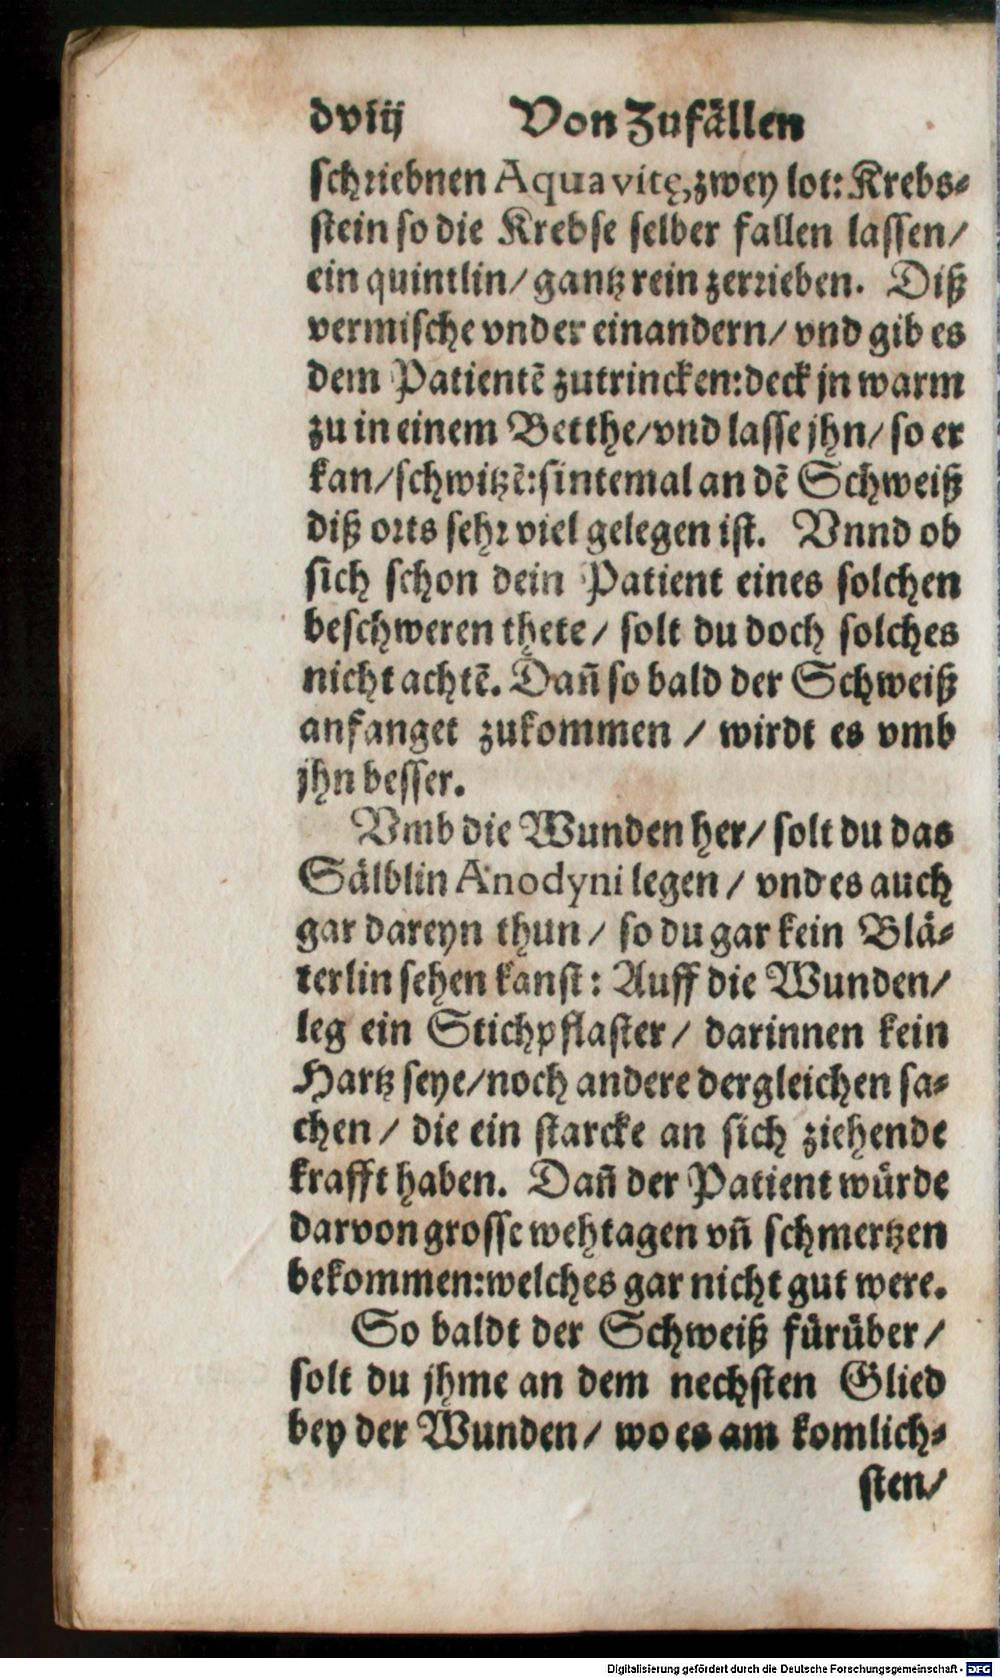 dviij Von Zufällen
schriebnen Aqua vitę, zwey lot: Krebs⸗
stein so die Krebse selber fallen lassen/
ein quintlin/ gantz rein zerrieben. Diß
vermische vnder einandern/ vnd gib es
dem Patientē zutrincken: deck jn warm
zu in einem Betthe/ vnd lasse jhn/ so er
kan/ schwitzē: sintemal an dē Schweiß
diß orts sehr viel gelegen ist. Vnnd ob
sich schon dein Patient eines solchen
beschweren thete/ solt du doch solches
nicht achtē. Dañ so bald der Schweiß
anfanget zukommen / wirdt es vmb
jhn besser.
Vmb die Wunden her/ solt du das
Sälblin Anodyni legen / vnd es auch
gar dareyn thun / so du gar kein Blä⸗
terlin sehen kanst: Auff die Wunden/
leg ein Stichpflaster/ darinnen kein
Hartz seye/ noch andere dergleichen sa⸗
chen / die ein starcke an sich ziehende
krafft haben. Dañ der Patient würde
darvon grosse wehtagen vñ schmertzen
bekommen: welches gar nicht gut were.
So baldt der Schweiß fürüber /
solt du jhme an dem nechsten Glied
bey der Wunden / wo es am komlich⸗
sten/
Digitalisierung gefördert durch die Deutsche Forschungsgemeinschaft - DFG